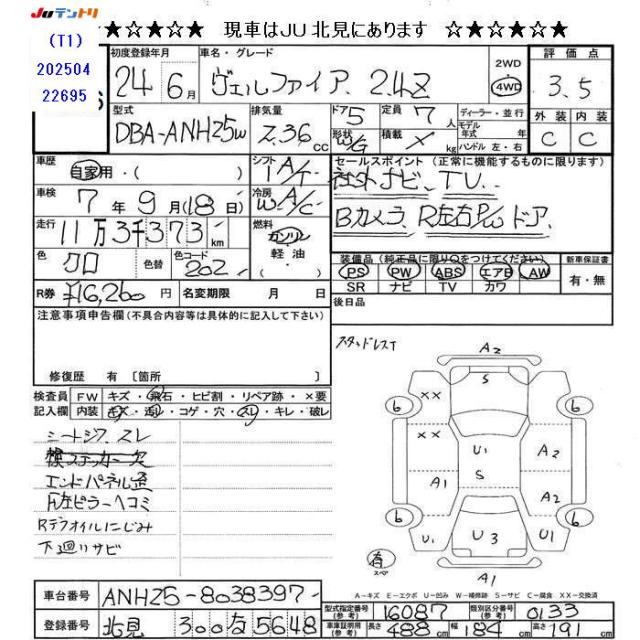 JUテントリ
★☆★☆★ 現車はJU北見にあります ☆★☆★☆★
(T1)
202504
22695
初度登録年月
24年6月
車名・グレード
ヴェルファイア 2.4Z
2WD
・
4WD
評価点
3.5
型式
DBA-ANH25W
排気量
2.36 cc
ドア 5
形状 W/G
定員 7人
積載 × kg
ディーラー・並行
モデル年式 年
ハンドル 左・右
外装 内装
C C
車歴
自家用・( )
シフト
IA/T
車検
7年9月(18日)
冷房
WA/C
走行
11万3千373 km
燃料
ガソリン
軽油
( )
色
クロ
色替
色コード
202
セールスポイント (正常に機能するものに限ります)
社外ナビ TV
Bカメラ R左右P/Wドア
装備品(純正品に限り○をつけてください)
PS PW ABS エアB AW
SR ナビ TV カワ
新車保証書
有・無
R券 ¥16,260円
名変期限 月 日
後日品
注意事項申告欄(不具合内容等は具体的に記入して下さい)
修復歴 有 〔箇所
検査員記入欄
FW キズ・飛石・ヒビ割・リペア跡・×要
内装 キズ・汚レ・コゲ・穴・スレ・キレ・破レ
シートシワ、スレ
エンドパネル歪
F左ピラーヘコミ
Rデフオイルにじみ
下廻りサビ
スタッドレスT
A2
S
6 ×× 6
×× U1 A2
S
A1 A2
6 6
U1 U3 U1
有
スペア
A1
A−キズ E−エクボ U−凹み W−補修跡 S−サビ C−腐食 XX−交換済
車台番号 ANH25-8038397
登録番号 北見 300 な 5648
型式指定番号(参考) 16087
類別区分番号(参考) 0133
車車証明用(参考) 長さ 488cm 幅 184cm 高さ 191cm